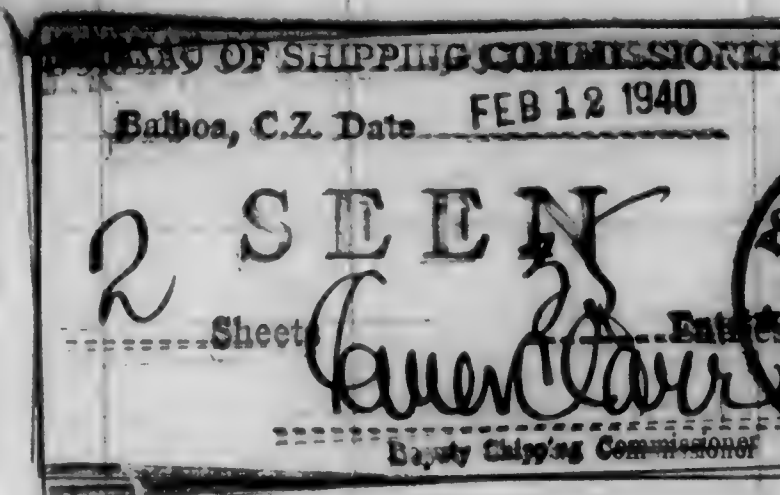 OF SHIPPING COMMISSIONER
Balboa, C.Z. Date FEB 12 1940
SEEN
2 Sheets Entries
Deputy Shipping Commissioner